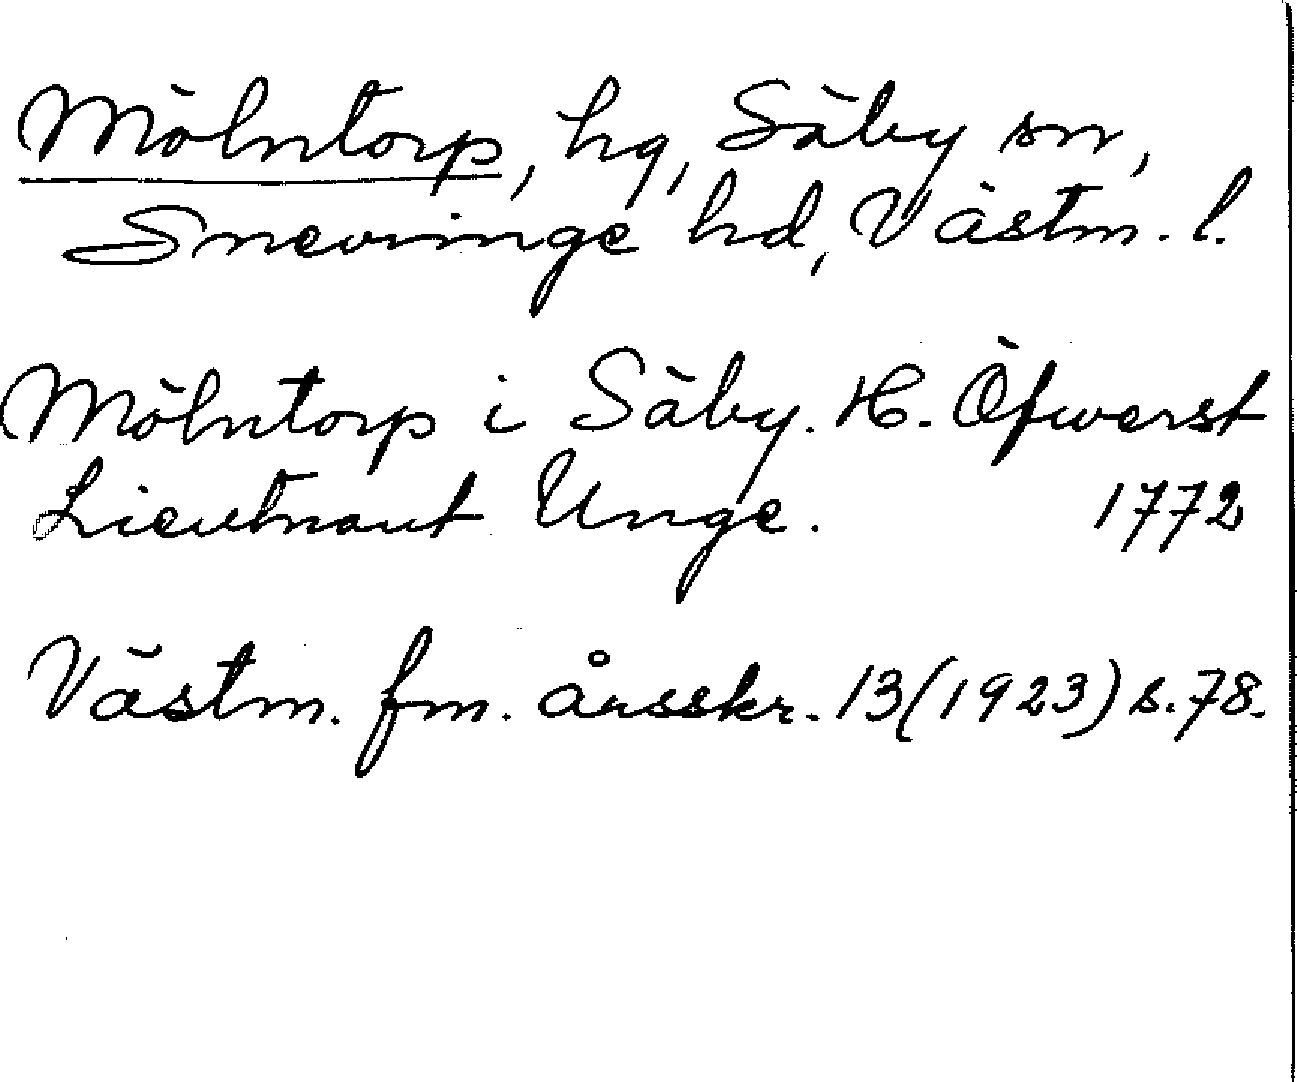 Mölntorp, hg, Säby sn,
Snevringe hd, Västm. l.
Mölntorp i Säby. H. Öfwerst
Lieutnant Unge. 1772
Västm. fm. årsskr. 13(1923) s. 78.